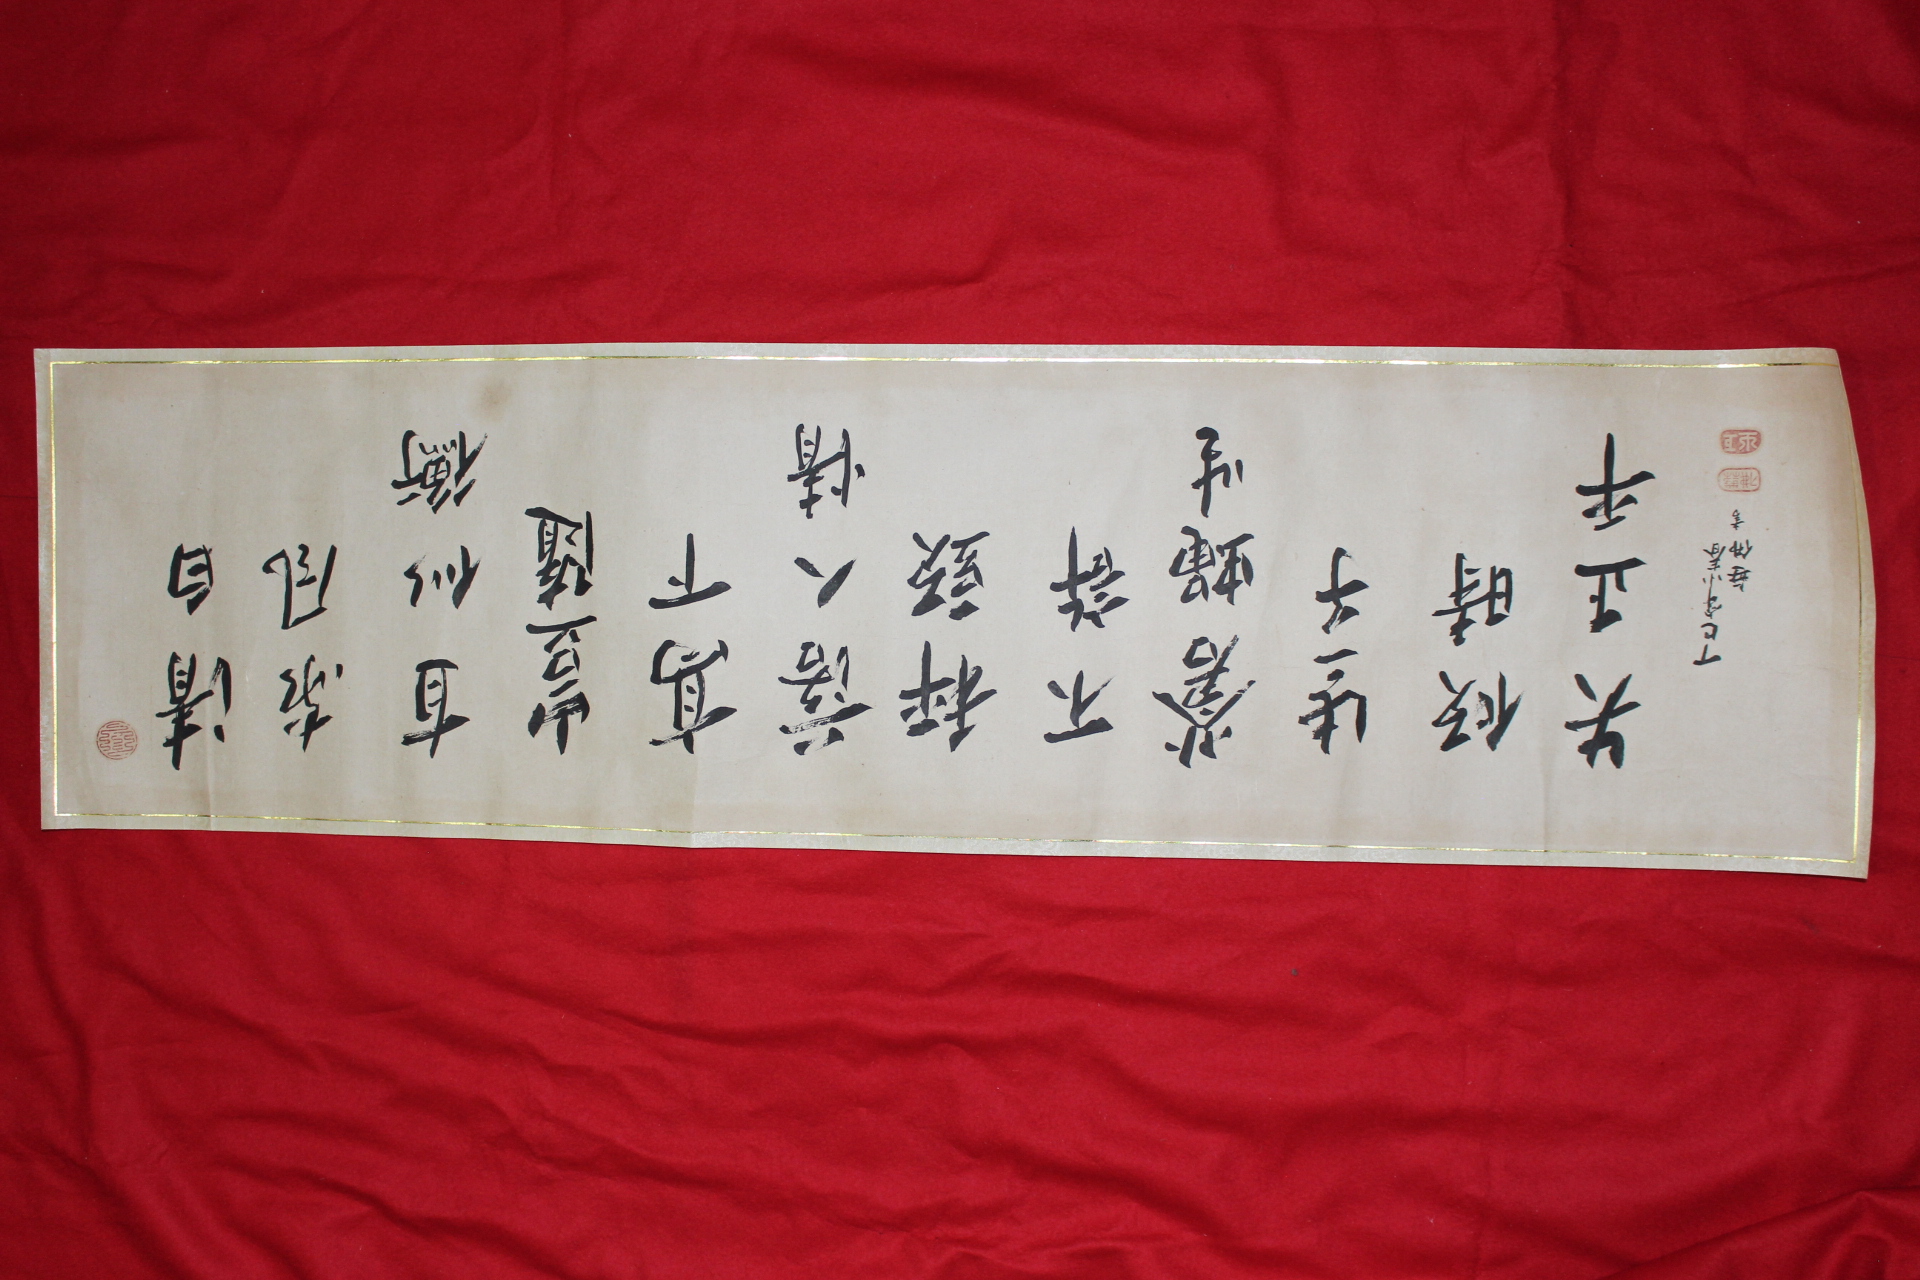 清白
家風
直似衡
豈隨
高下
落人情
秤頭
不許
蒼蠅坐
些子
傾時
失正平
丁巳年小春
無佛書